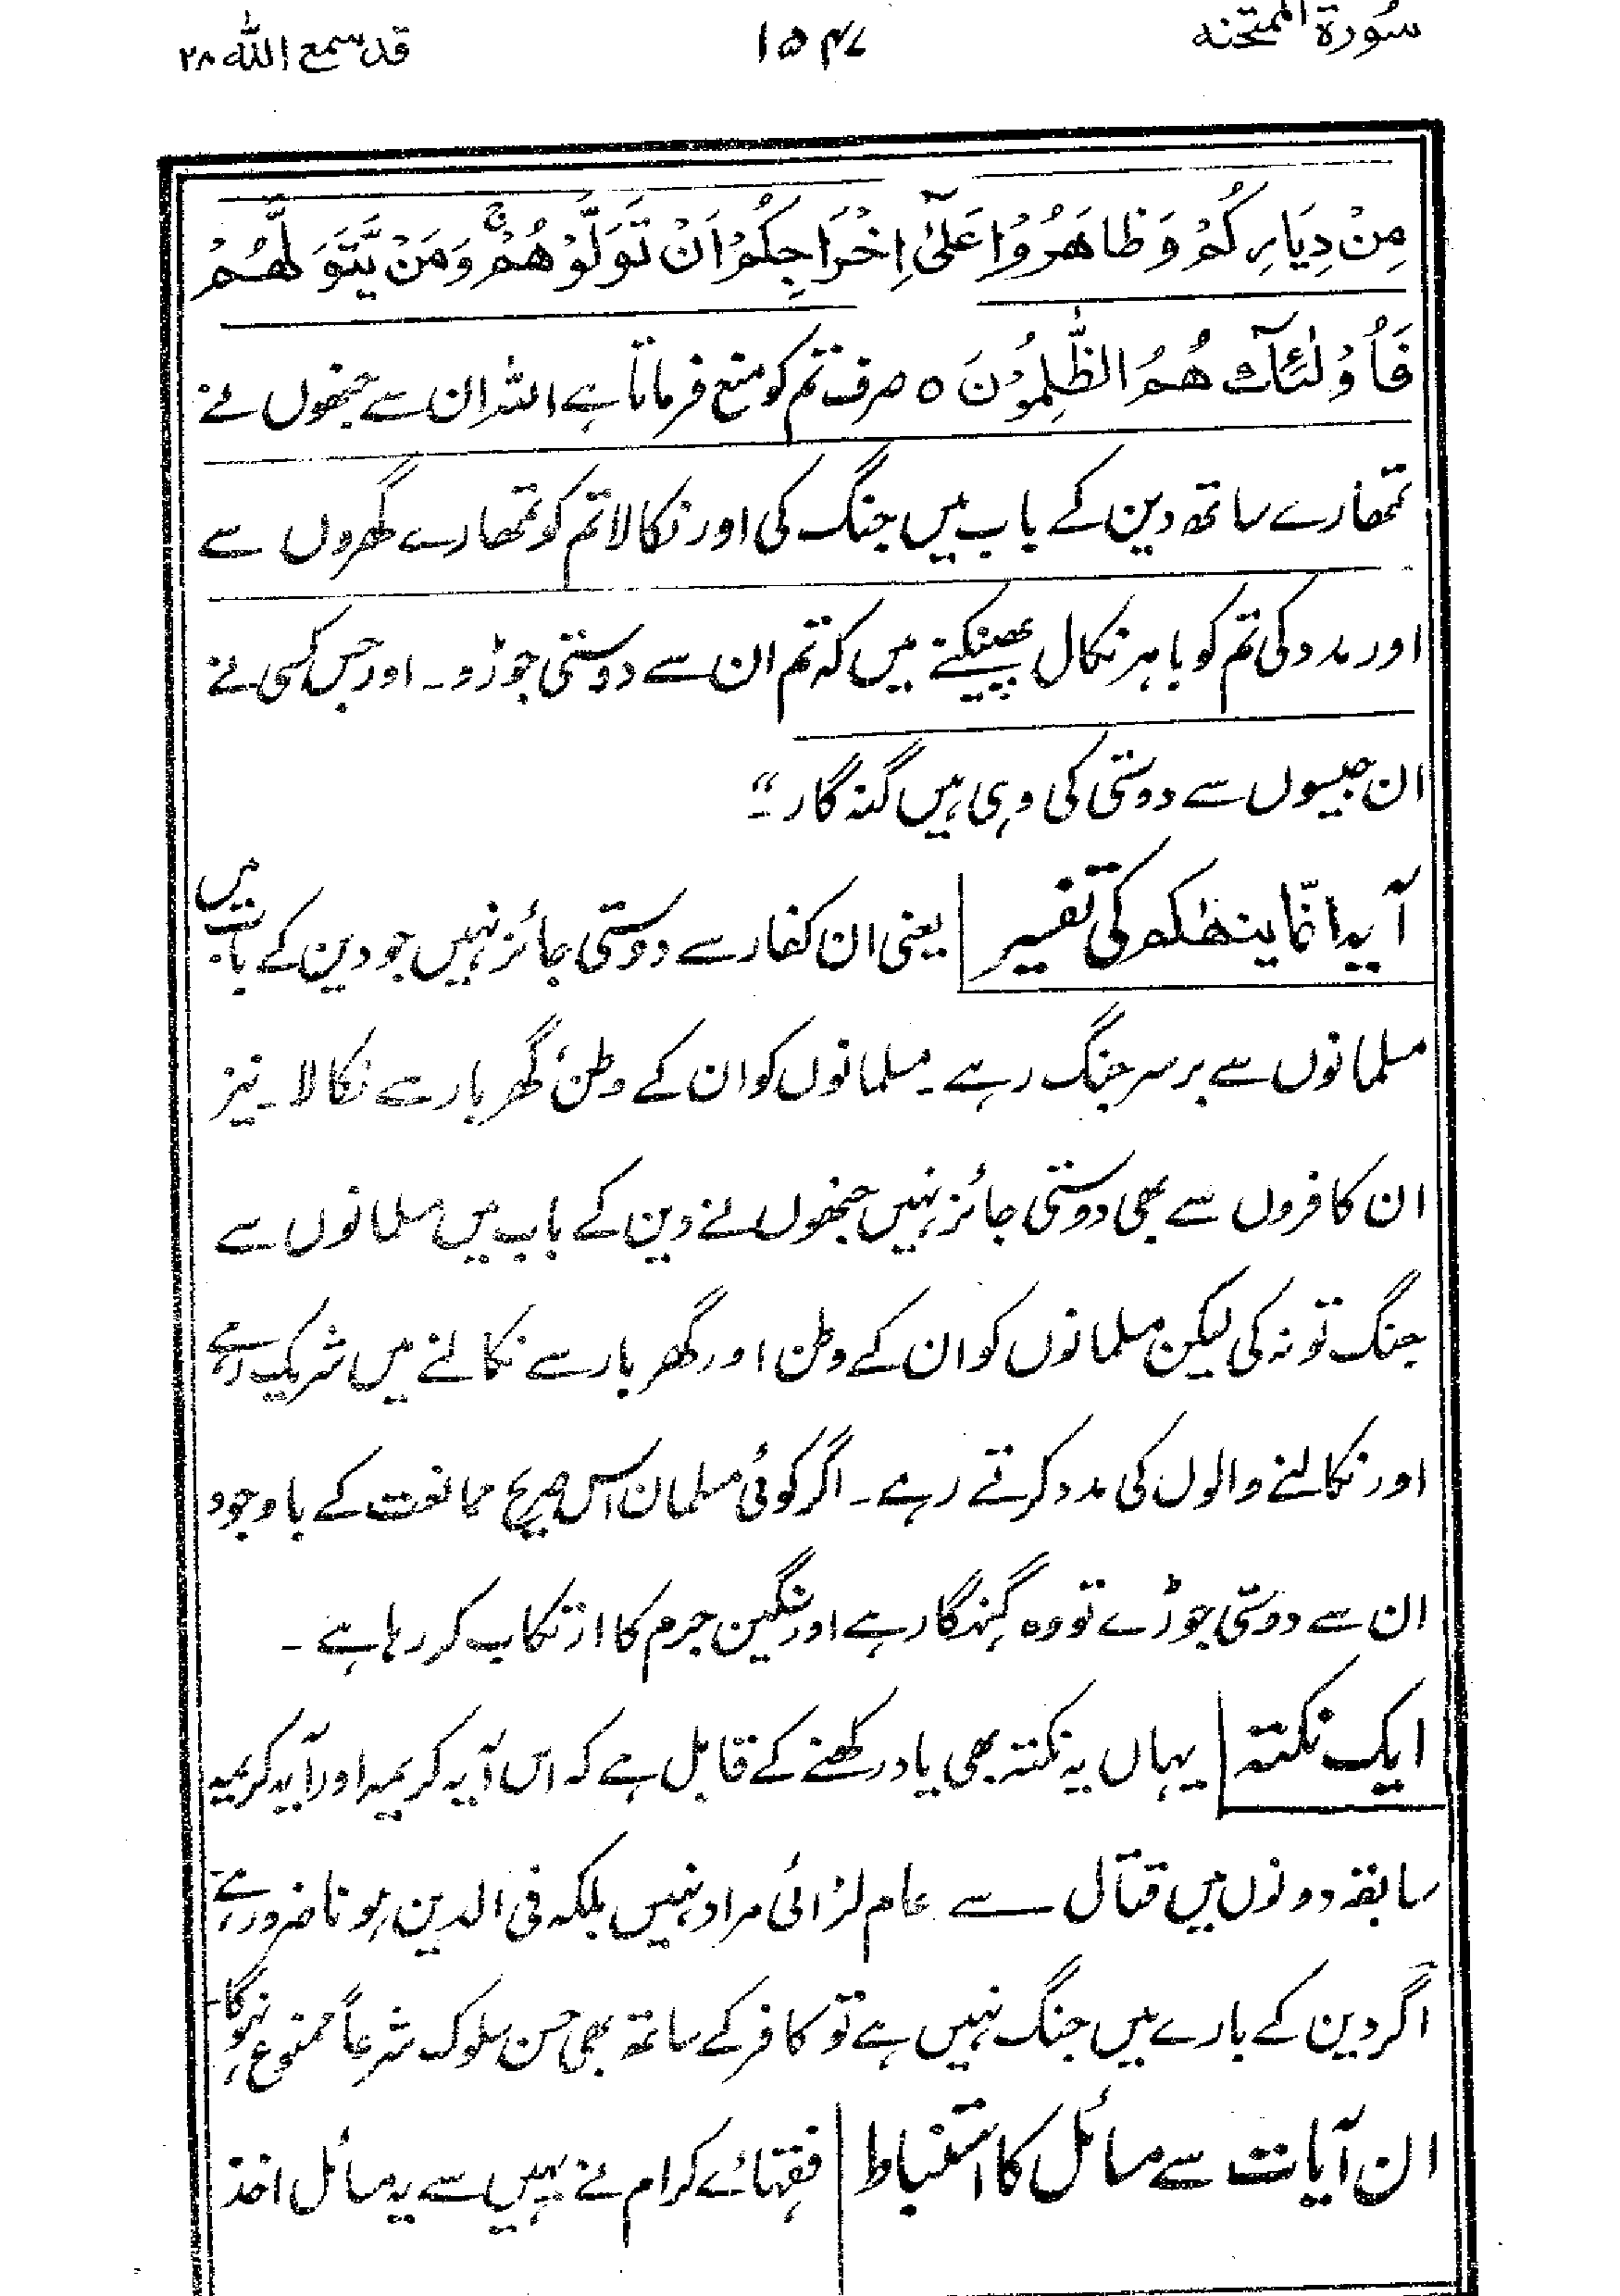 سورة الممتحنه ۱۵۴۷ قد سمع الله ۲۸
مِنْ دِيَارِكُمْ وَظَاهَرُوْا عَلٰٓى اِخْرَاجِكُمْ اَنْ تَوَلَّوْهُمْ ۚ وَمَنْ يَّتَوَلَّهُمْ
فَاُولٰٓئِكَ هُمُ الظّٰلِمُوْنَ ○ صرف تم کو منع فرماتا ہے اللہ ان سے جنھوں نے
تمھارے ساتھ دین کے باب میں جنگ کی اور نکالا تم کو تمھارے گھروں سے
اور مدد کی تم کو باہر نکال پھینکنے میں کہ تم ان سے دوستی جوڑو۔ اور جس کسی نے
ان جیسوں سے دوستی کی وہی ہیں گنہ گار۔“
آیہ انّما ینھٰکم کی تفسیر یعنی ان کفار سے دوستی جائز نہیں جو دین کے باب میں
مسلمانوں سے برسرِ جنگ رہے۔ مسلمانوں کو ان کے وطن گھر بار سے نکالا۔ نیز
ان کافروں سے بھی دوستی جائز نہیں جنھوں نے دین کے باب میں مسلمانوں سے
جنگ تو نہ کی لیکن مسلمانوں کو ان کے وطن اور گھر بار سے نکالنے میں شریک رہے
اور نکالنے والوں کی مدد کرتے رہے۔ اگر کوئی مسلمان اس صریح ممانعت کے باوجود
ان سے دوستی جوڑے تو وہ گنہگار ہے اور سنگین جرم کا ارتکاب کر رہا ہے۔
ایک نکتہ یہاں یہ نکتہ بھی یاد رکھنے کے قابل ہے کہ اس آیہ کریمہ اور آیہ کریمہ
سابقہ دونوں میں قتال سے عام لڑائی مراد نہیں بلکہ فی الدین ہونا ضرور ہے
اگر دین کے بارے میں جنگ نہیں ہے تو کافر کے ساتھ بھی حسن سلوک شرعاً ممنوع نہ ہوگا۔
ان آیات سے مسائل کا استنباط فقہائے کرام نے یہیں سے یہ مسائل اخذ